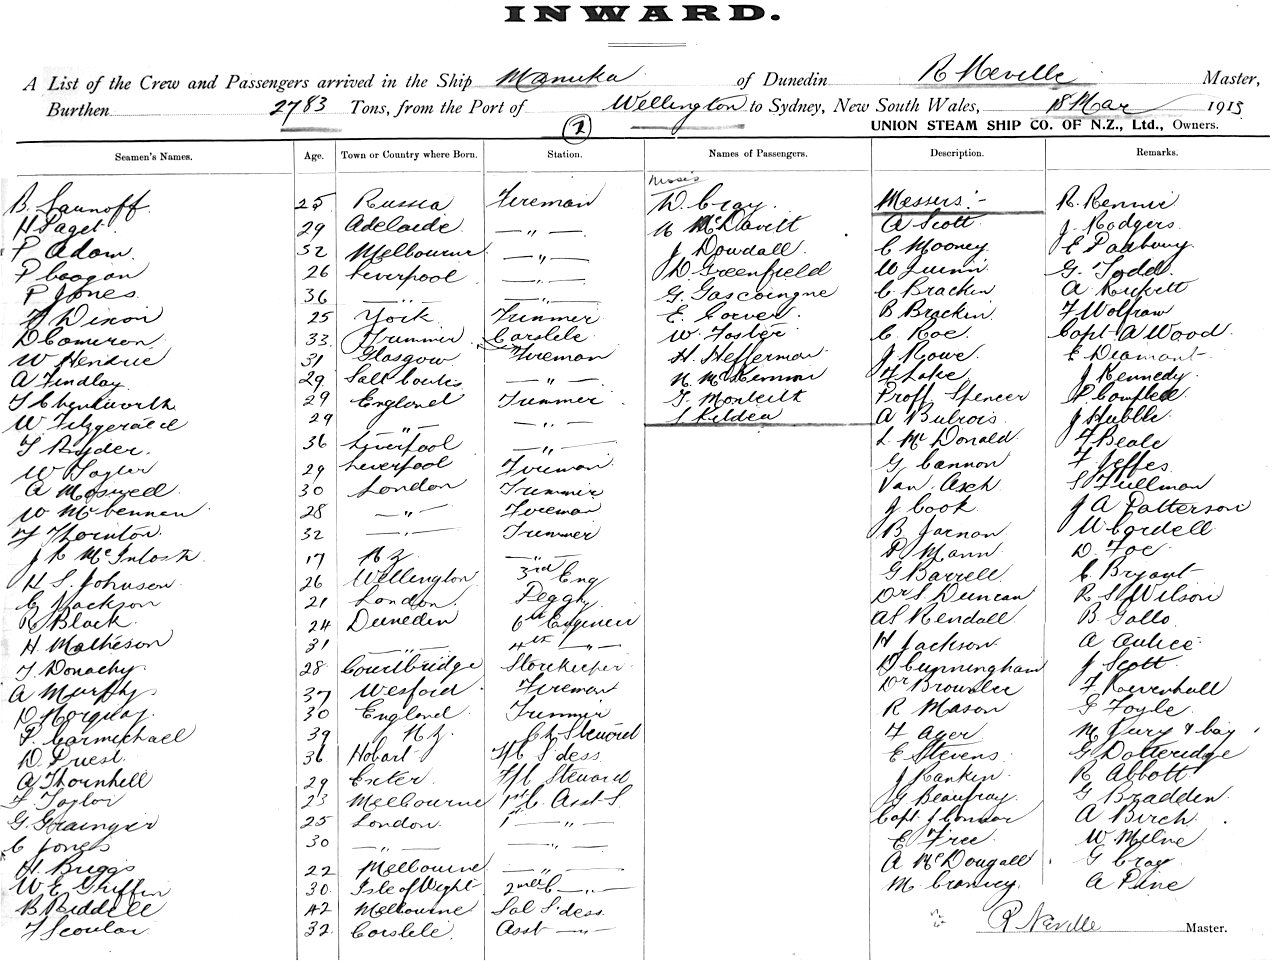 INWARD.
A List of the Crew and Passengers arrived in the Ship Manuka of Dunedin R Neville Master,
Burthen 2783 Tons, from the Port of Wellington to Sydney, New South Wales, 18 Mar 1915
(2) UNION STEAM SHIP CO. OF N.Z., Ltd., Owners.
Seamen's Names. Age. Town or Country where Born. Station. Names of Passengers. Description. Remarks.
Misses
B. Saunoff. 25 Russia Fireman D. Gray. Messers:- R. Rennie
H Paget. 29 Adelaide — " — McDavitt A Scott J. Rodgers
P Adam. 32 Melbourne — " — J Dowdall C Mooney E Padbury
P Coogan 26 Liverpool — " — D Greenfield W Quinn G. Todd
P Jones 36 — " — — " — G. Gascoingne C Brackin A Rickett
F Dixon 25 York Trimmer E. Corver B Brackin F Wolfram
D Cameron 33 Trimmer Carslile W. Foster C Roe Capt A Wood
W Hendrie 31 Glasgow Fireman H. Hefferman J. Rowe E Diamant
A Findlay 29 Salt Coats — " — N McKinnon F Lake J Kennedy
29 England Trimmer G. Monteith Proff Spencer P Campbell
W Fitzgerald 29 " — " — S Kildea A Bulrois J Hubble
T Ryder 36 Liverpool — " — L McDonald F Beale
W Taylor 29 Liverpool Fireman G Cannon F Jeffes
A Maxwell 30 London Trimmer Van Asch S Fullman
W McLennan 28 — " — Fireman J Cook J A Patterson
F Thornton 32 — " — Trimmer B Jarnan W Cordell
J R McIntosh 17 N.Z. — " — P Mann D. Foe
H S. Johnson 26 Wellington 3rd Eng G Barrell C Bryant
E Jackson 21 London Peggy Dr S Duncan R S Wilson
R Black 24 Dunedin 6th Engineer AS Kendall B Gallo
H. Matheson 31 — " — 4th — " — H Jackson A Cutice
T Donachy 28 Coartbridge Storekeeper D Cunningham J Scott
A Murphy 37 Wexford Fireman Dr Brownlee F Revenhall
D Norquay 30 England Trimmer R Mason G Foyle
P. Carmichael 39 N.Z. Ch Steward F Ager M Jury & boy
D Priest 36 Hobart F/C S'dess E Stevens G Dotteridge
A Thornhill 29 Exeter F/C Steward J Rankin R Abbott
F Taylor 23 Melbourne 1st C. Asst S. G Beaufray G Bradden
G. Grainger 25 London 1 — " — Capt J Connor A Birch
C Jones 30 — " — — " — E Free W Milne
H. Briggs 22 Melbourne — " — A McDougall G Cray
W E Griffin 30 Isle of Wight 2nd C — " — M Cranney A Pine
B Riddell 42 Melbourne Sal S'dess
F Scoular 32 Carslile Asst — " — R Neville Master.